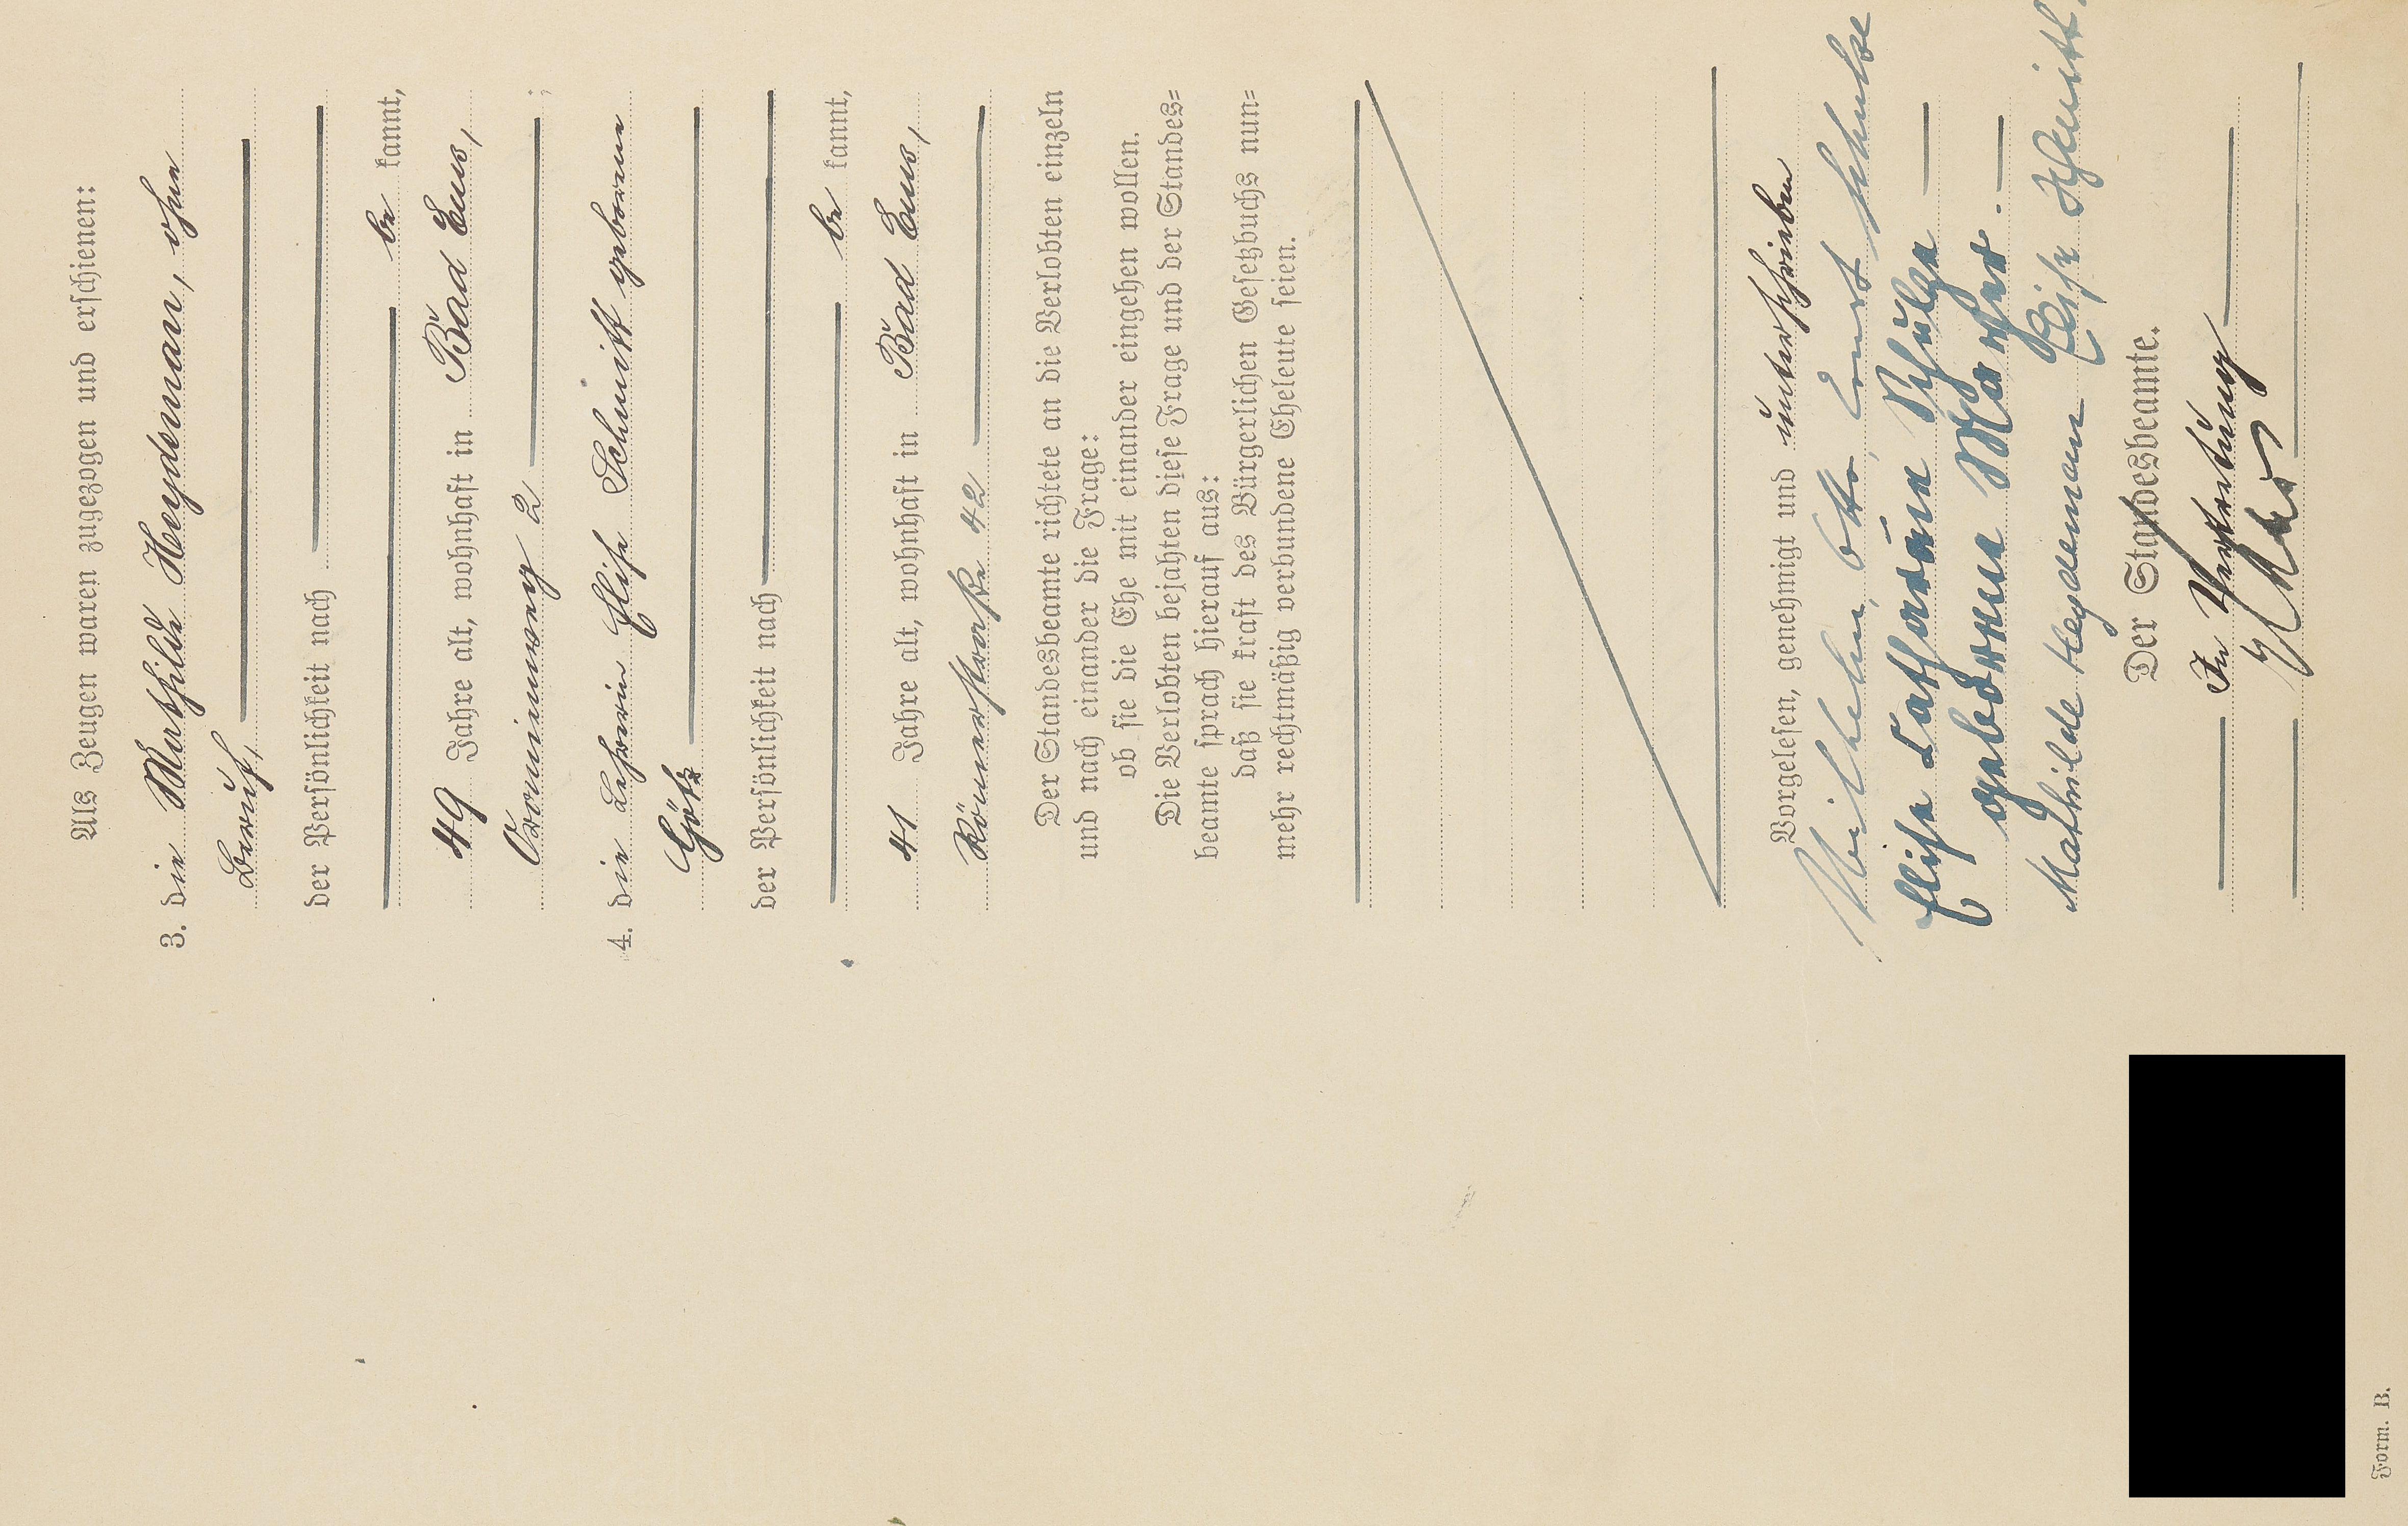 Als Zeugen waren zugezogen und erschienen:
3. die Mathilde Heydemann, ohne
Beruf,
der Persönlichkeit nach
be kannt,
49 Jahre alt, wohnhaft in Bad Ems,
2
4. die Lehrerin Elise Schmitt geborene
Götz
der Persönlichkeit nach
be kannt,
41 Jahre alt, wohnhaft in Bad Ems,
Römerstraße 42
Der Standesbeamte richtete an die Verlobten einzeln
und nach einander die Frage:
ob sie die Ehe mit einander eingehen wollen.
Die Verlobten bejahten diese Frage und der Standes=
beamte sprach hierauf aus:
daß sie kraft des Bürgerlichen Gesetzbuchs nun=
mehr rechtmäßig verbundene Eheleute seien.
Vorgelesen, genehmigt und unterschrieben
Wilhelm, Otto, Ernst Schulze
Elise Catharina Schulze
geborene
Mathilde Heydemann Elise Schmitt.
Der Standesbeamte.
In Vertretung
Form. B.